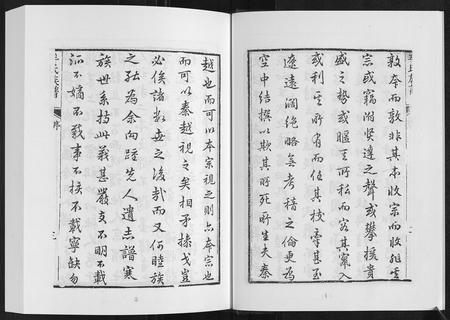 敦本而敦非其本收宗而收非其
宗或竊附賢達之聲或攀援貴
盛之勢或暱其所私而容其竄入
或利其所有而任其扳牽甚至
遼遠濶絶略無考稽之倫更為
空中結撰以欺其所死所生夫秦
越也而可以本宗視之則亦本宗也
而可以秦越視之矣相矛操戈豈
必俟諸數世之後哉而又何睦族
之紘為余向歷先人遺志譜寒
族世系持此義甚嚴支不明不載
派不嫡不載事不核不載寧缺勿
氏族譜
序